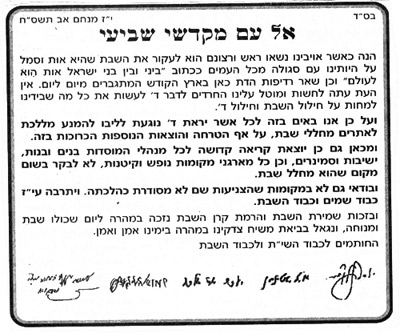 בס"ד
י"ז מנחם אב תשס"ח
אל עם מקדשי שביעי
הנה כאשר אויבינו נשאו ראש ורצונם הוא לעקור את השבת שהיא אות וסמל
על היותינו עם סגולה מכל העמים ככתוב "ביני ובין בני ישראל אות הוא
לעולם" וכן שאר רדיפות הדת כאן בארץ הקודש המתגברים מיום ליום. אין
העת עתה לחשות ומוטל עלינו החרדים לדבר ד' לעשות את כל מה שבידינו
למחות על חילול השבת וחילול ד'.
ועל כן אנו באים בזה לכל אשר יראת ד' נוגעת לליבו להמנע מללכת
לאתרים מחללי שבת, על אף הטרחה והוצאות הנוספות הכרוכות בזה.
ומכאן גם כן יוצאת קריאה קדושה לכל מנהלי המוסדות בנים ובנות,
ישיבות וסמינרים, וכן כל מארגני מקומות נופש וקיטנות, לא לבקר בשום
מקום שהוא מחלל שבת.
ובודאי גם לא במקומות שהצניעות שם לא מסודרת כהלכתה. ויתרבה עי"ז
כבוד שמים וכבוד השבת.
ובזכות שמירת השבת והרמת קרן השבת נזכה במהרה ליום שכולו שבת
ומנוחה, ונגאל בביאת משיח צדקינו במהרה בימינו אמן ואמן.
החותמים לכבוד השי"ת ולכבוד השבת